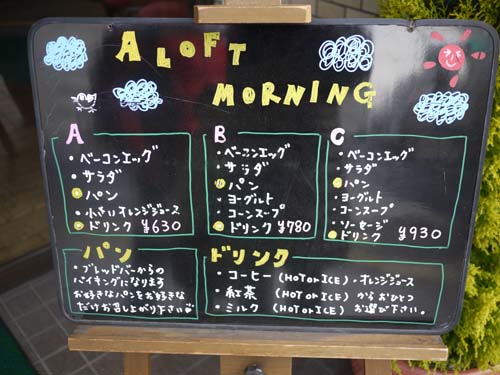 A LOFT
MORNING
A
・ベーコンエッグ
・サラダ
・パン
・小さいオレンジジュース
・ドリンク ¥630
B
・ベーコンエッグ
・サラダ
・パン
・ヨーグルト
・コーンスープ
・ドリンク ¥780
C
・ベーコンエッグ
・サラダ
・パン
・ヨーグルト
・コーンスープ
・ソーセージ
・ドリンク ¥930
パン
・ブレッドバーからの
バイキングになります
お好きなパンをお好きな
だけお召し上がり下さい
ドリンク
・コーヒー (HOT or ICE)・オレンジジュース
・紅茶 (HOT or ICE) からおひとつ
・ミルク (HOT or ICE) お選び下さい。